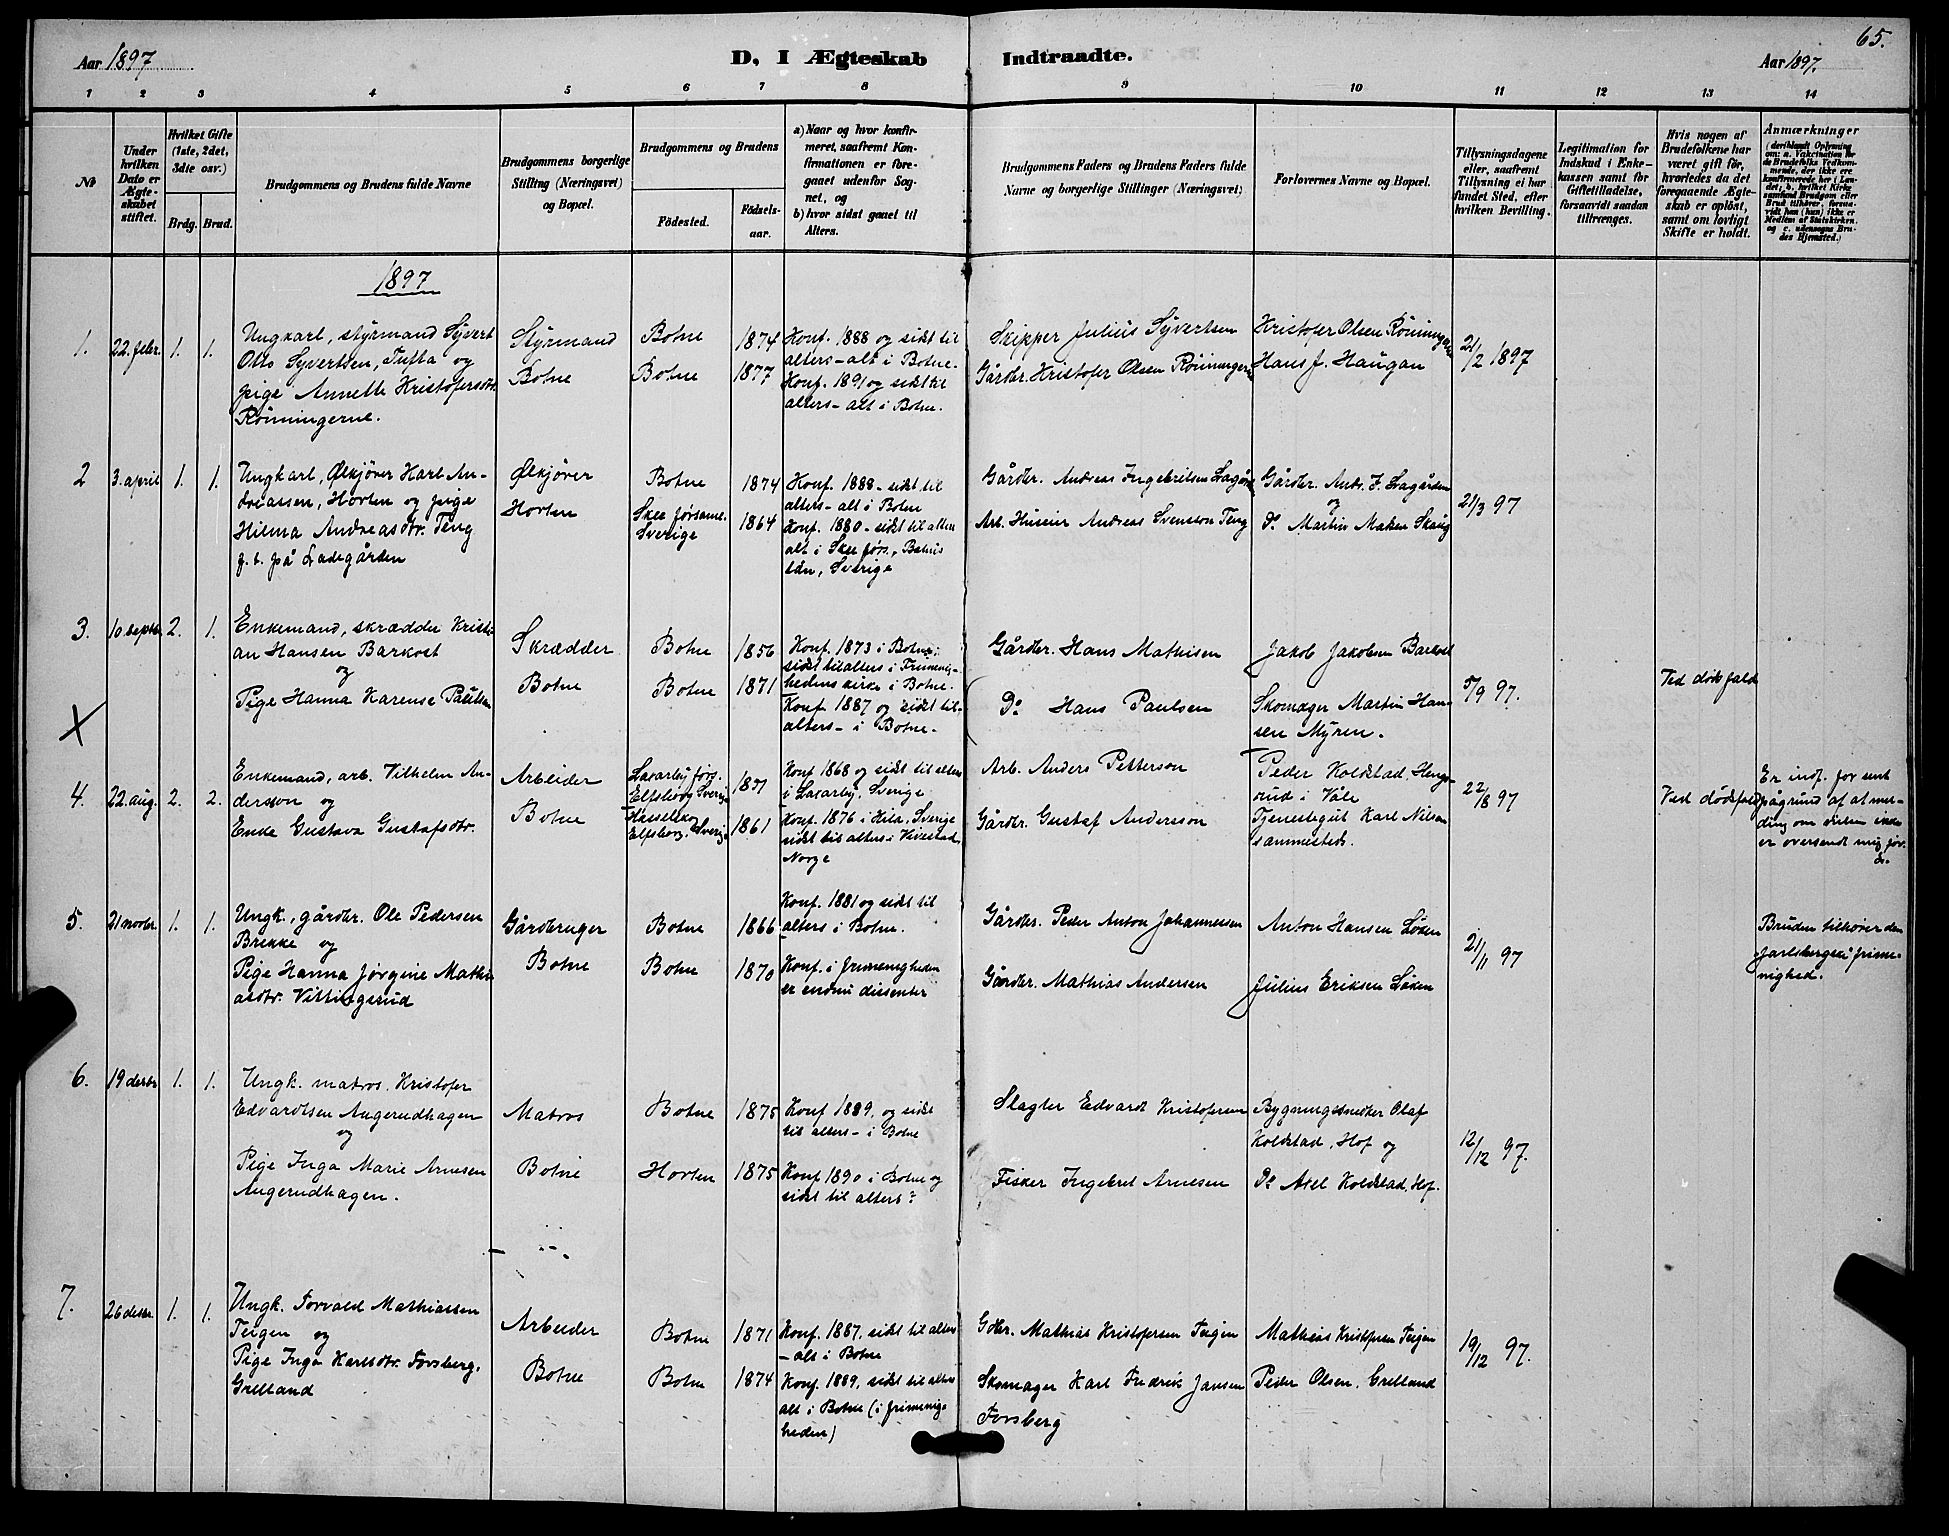 65.
Aar 1897
D, I Ægteskab Indtraadte.
Aar 1897.
1 2 3 4 5 6 7 8 9 10 11 12 13 14
No
Under hvilken Dato er Ægteskabet stiftet.
Hvilket Gifte (1ste, 2det, 3die osv.)
Brdg. Brud.
Brudgommens og Brudens fulde Navne
Brudgommens borgerlige Stilling (Næringsvei) og Bopæl.
Brudgommens og Brudens
Fødested.
Fødselsaar.
a) Naar og hvor konfirmeret, saafremt Konfirmationen er foregaaet udenfor Sognet, og
b) hvor sidst gaaet til Alters.
Brudgommens Faders og Brudens Faders fulde Navne og borgerlige Stillinger (Næringsvei)
Forlovernes Navne og Bopæl.
Tillysningsdagene eller, saafremt Tillysning ei har fundet Sted, efter hvilken Bevilling.
Legitimation for Indskud i Enkekassen samt for Giftetilladelse, forsaavidt saadan tiltrænges.
Hvis nogen af Brudefolkene har været gift før, hvorledes da det foregaaende Ægteskab er opløst, samt om lovligt Skifte er holdt.
Anmærkninger (deriblandt Oplysning om: a. Vaccination for de Brudefolks Vedkommende, der ikke ere konfirmerede her i Landet; b. hvilket Kirkesamfund Brudgom eller Brud tilhører, forsaavidt han (hun) ikke er Medlem af Statskirken, og c. udensogns Brudes Hjemsted.)
1897
1. 22. febr. 1. 1.
Ungkarl, styrmand Syvert
Otto Syvertsen, Tufta og
pige Annette Kristofersdtr.
Rönningerne.
Styrmand
Botne
Botne 1874
Botne 1877
Konf. 1888 og sidst til
alters - alt i Botne.
Konf. 1891 og sidst til
alters - alt i Botne.
Skipper Julius Syvertsen
Gårdbr. Kristofer Olsen Rönningerne
Kristofer Olsen Rönningen
Hans J. Haugan
21/2 1897
2 3. april 1. 1.
Ungkarl, Ølkjører Karl An-
dreassen, Horten og pige
Hilma Andreasdtr. Teng
f. t. på Ladegården
Ølkjører
Horten
Botne 1874
Skee førsaml.
Sverige 1864
Konf. 1888 - sidst til
alters - alt i Botne
Konf. 1880 - sidst til alters
alt i Skee førs., Bohus
län, Sverige
Gårdbr. Andreas Ingebritsen
Arb. Andreas Svensson Teng
Gårdbr. Andr. I.
og
Do Martin Skaug
21/3 97
3. 10. septbr. 2. 1.
Enkemand, skrædder Kristi-
an Hansen Barkost
og
Pige Hanna Karense Paulsen
Skrædder
Botne
Botne 1856
Botne 1871
Konf. 1873 i Botne;
sidst til alters i Frimenig-
hedens kirke i Botne.
Konf. 1887 og sidst til
alters - i Botne.
Gårdbr. Hans Mathisen
Do Hans Paulsen
Jakob Jakobsen Barkost
Skomager Martin Han-
sen Myren.
5/9 97.
Ved dødsfald
X
4. 22. aug. 2. 2.
Enkemand, arb. Vilhelm An-
dersson og
Enke Gustava Gustafsdtr.
Arbeider
Botne
Elfsborg, Sverige
Elfsborg, Sverige 1861
Konf 1868 og sidst til alters
Sverige
Konf. 1876 i Sverige
sidst til alters i
Norge
Arb. Anders Petterson
Gårdbr. Gustaf Andersson
Peder Koldstad, Hengs-
rud i Våle
Tjenestegut Karl Nilsen
sammesteds.
22/8 97
Ved dødsfald
Er indf. for sent
pågrund af at mel-
ding om vielsen ikke
er oversendt mig før.
5. 21 novbr. 1. 1.
Ungk., gårdbr. Ole Pedersen
Brekke og
Pige Hanna Jørgine Mathi-
asdtr. Vittingsrud
Gårdbruger
Botne
Botne 1866
Botne 1870
Konf. 1881 og sidst til
alters i Botne.
Konf. i frimenigheden
er endnu dissenter
Gårdbr. Peder Anton Johannessen
Gårdbr. Mathias Andersen
Anton Hansen Løken
Julius Eriksen Løken
21/11 97
Bruden tilhører den
jarlsbergske frime-
nighed.
6. 19 decbr 1. 1.
Ungk. matros. Kristofer
Edvardtsen Angerudhagen
og
Pige Inga Marie Arnesen
Angerudhagen.
Matros
Botne
Botne 1875
Horten 1875
Konf 1889, og sidst
til alters - i Botne
Konf 1890 i Botne og
sidst til alters?
Slagter Edvardt Kristofersen
Fisker Ingebret Arnesen
Bygningssnedker Olaf
Koldstad, Hof og
Do Axel Koldstad, Hof.
12/12 97.
7. 26 decbr. 1. 1.
Ungk. Torvald Mathiassen
Teigen og
Pige Inga Karlsdtr. Forsberg,
Grelland
Arbeider
Botne
Botne 1871
Botne 1874
Konf. 1887, sidst til alters
- alt i Botne
Konf. 1889, sidst til alters
alt i Botne (i frimenig-
heden)
Gdbr. Mathias Kristofersen Teigen
Skomager Karl Fredrik Jansen
Forsberg
Mathias Kristofersen Teigen
Peder Olsen, Grelland
19/12 97.